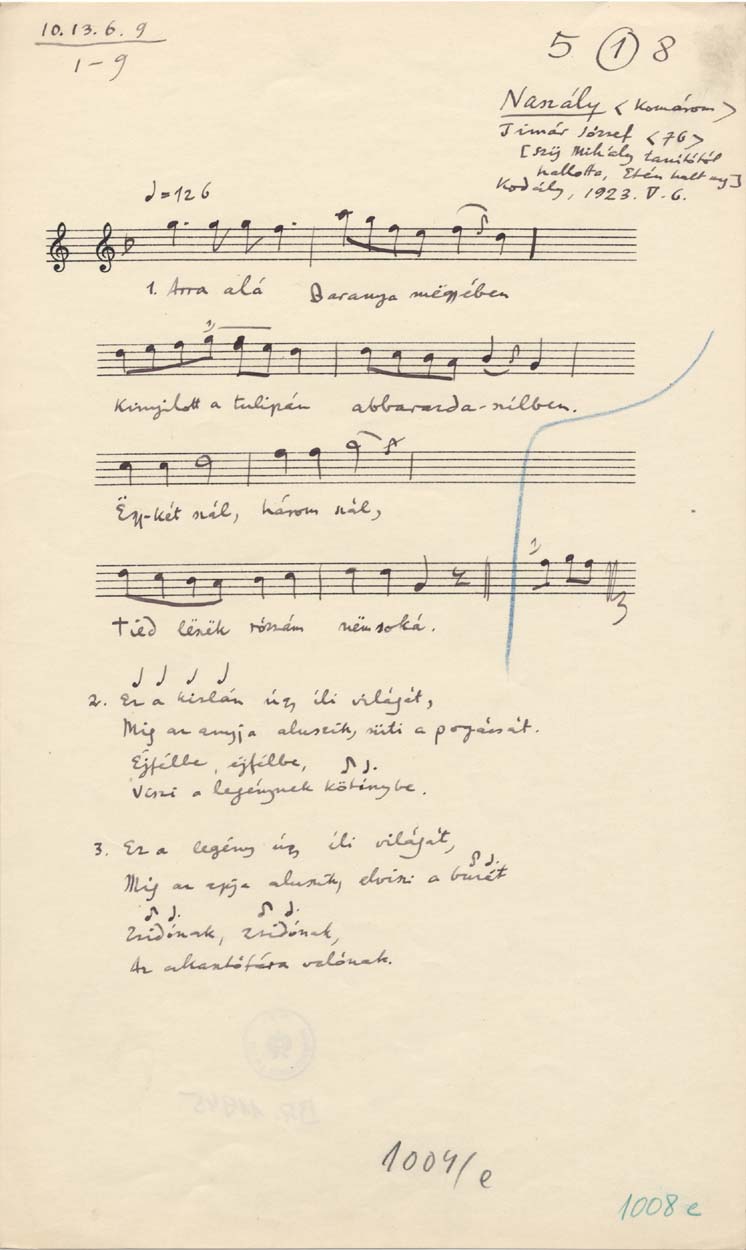 10. 13. 6. 9
1-9
5 ① 8
Naszály < Komárom >
Timár József < 76 >
[ Szíj Mihály tanítótól
hallotta, Etén halt meg ]
Kodály, 1923. V. 6.
♩=126
1. Arra alá Baranya mëgyében
1)
Kinyilott a tulipán abbarazda-szélben.
Ëgy-két szál, három szál,
1)
Tiéd lëszëk rózsám nëmsoká.
2. Ez a kislán úgy éli világát,
Míg az anyja aluszik, süti a pogácsát.
Éjfélbe, éjfélbe,
Viszi a legénynek kötőnybe.
3. Ez a legény úgy éli világát,
Míg az apja aluszik, elviszi a buzát
Zsidónak, zsidónak,
Az akasztófára valónak.
1004/e
1008 e